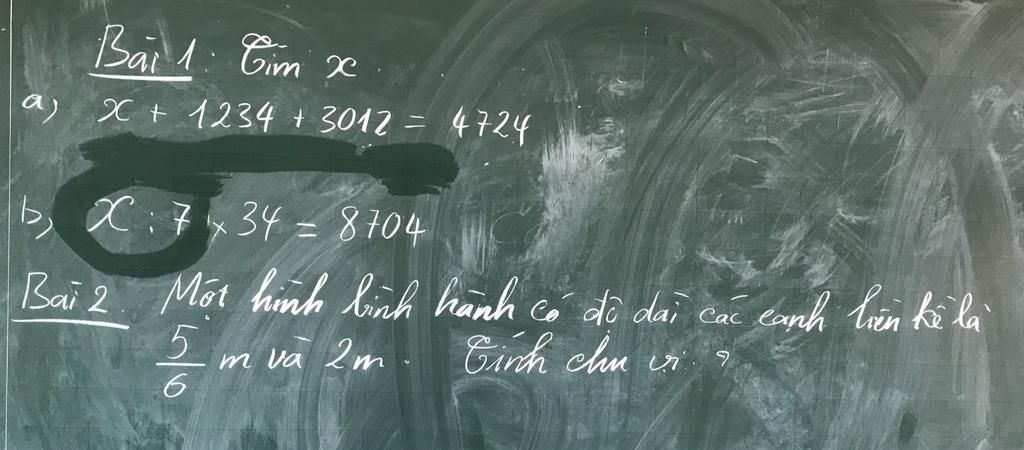 Bài 1: Tìm x
a) x + 1234 + 3012 = 4724
b) x : 7 x 34 = 8704
Bài 2. Một hình bình hành có độ dài các cạnh liên kề là
5/6 m và 2m. Tính chu vi ?